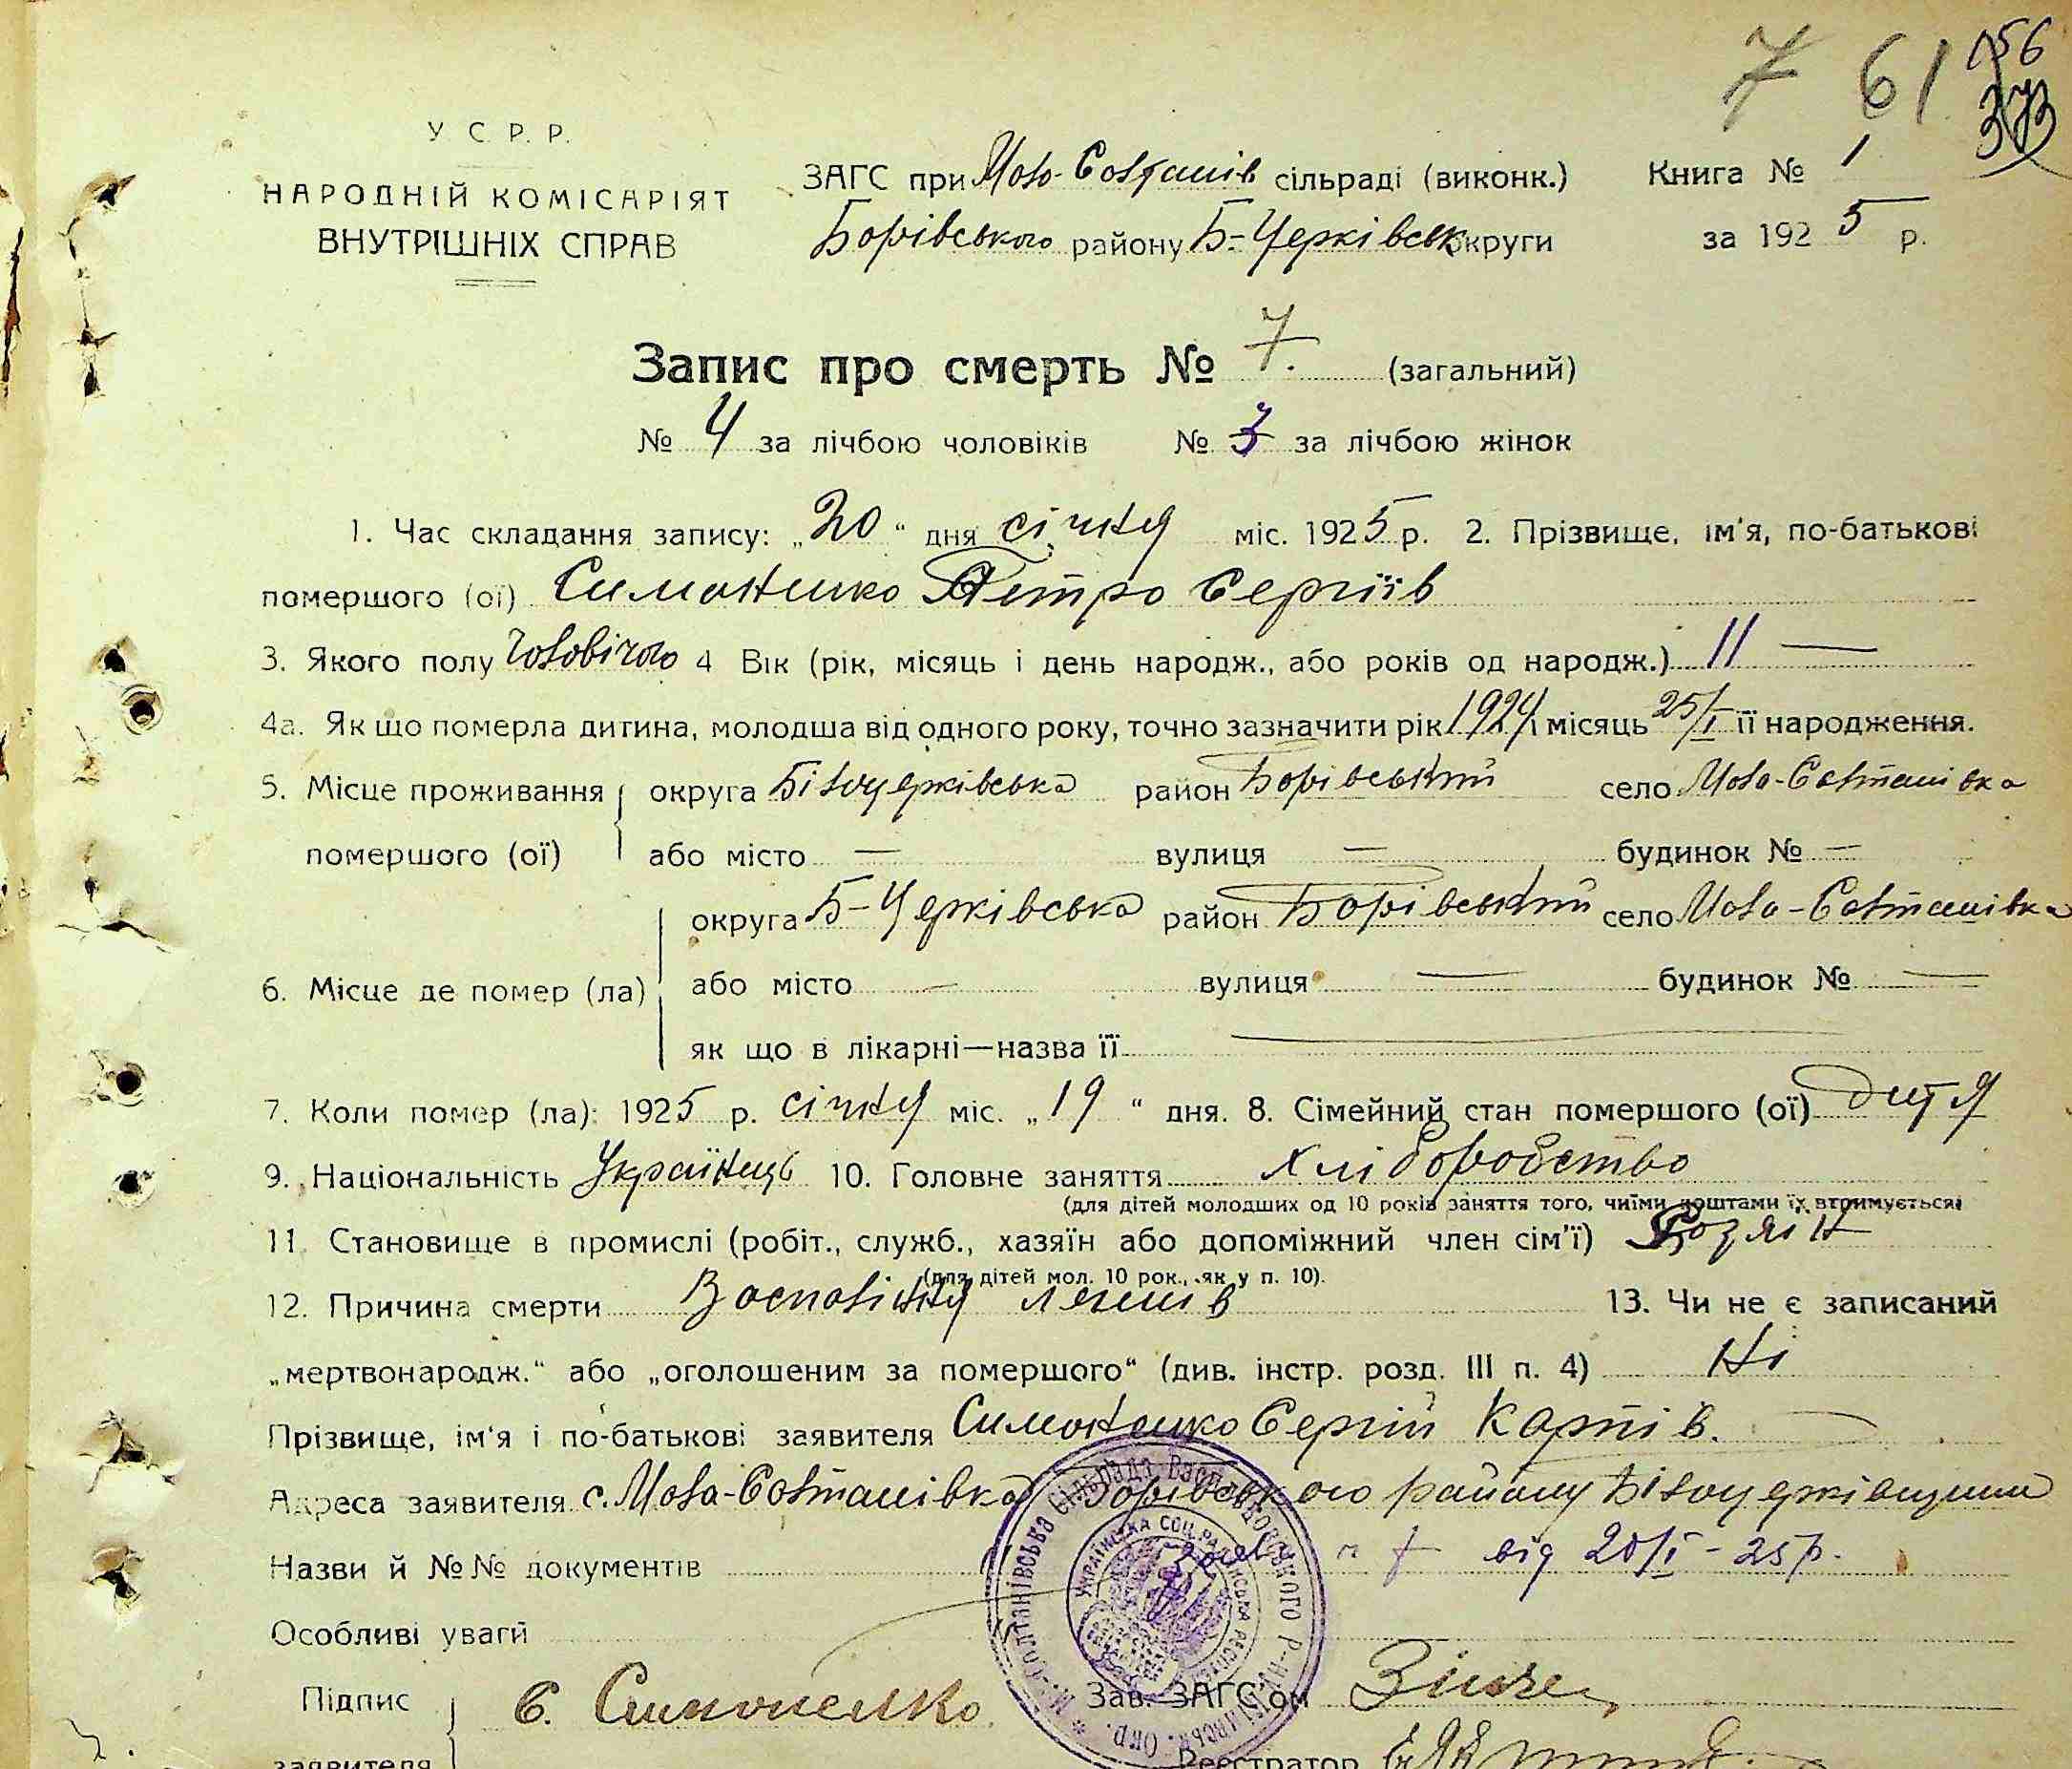 7 61 156
373
У С. Р. Р.
НАРОДНІЙ КОМІСАРІЯТ
ВНУТРІШНІХ СПРАВ
ЗАГС при Мало-Солтанів сільраді (виконк.)
Борівського району Б-Церківськ округи
Книга № 1
за 1925 р.
Запис про смерть № 7. (загальний)
№ 4 за лічбою чоловіків № 3 за лічбою жінок
1. Час складання запису: „20“ дня січня міс. 1925 р. 2. Прізвище, ім'я, по-батькові
помершого (ої) Симоненко Петро Сергіїв
3. Якого полу чоловічого 4 Вік (рік, місяць і день народж., або років од народж.) 11 —
4а. Як що померла дитина, молодша від одного року, точно зазначити рік 1924 і місяць 25/I її народження.
5. Місце проживання помершого (ої) округа Білоцерківська район Борівський село Мала-Солтанівка
або місто — вулиця — будинок № —
6. Місце де помер (ла) округа Б-Церківська район Борівський село Мала-Солтанівка
або місто — вулиця — будинок № —
як що в лікарні—назва її —
7. Коли помер (ла): 1925 р. січня міс. „19“ дня. 8. Сімейний стан помершого (ої) дитя
9. Національність Українець 10. Головне заняття хліборобство
(для дітей молодших од 10 років заняття того, чиїми коштами їх втримується)
11. Становище в промислі (робіт., служб., хазяїн або допоміжний член сім'ї)
(для дітей мол. 10 рок., як у п. 10).
12. Причина смерти Воспоління легенів 13. Чи не є записаний
„мертвонародж.“ або „оголошеним за помершого“ (див. інстр. розд. III п. 4) Ні
Прізвище, ім'я і по-батькові заявителя Симоненко Сергій Карпів.
Адреса заявителя с. Мала-Солтанівка Борівського району Білоцерківщини
Назви й №№ документів від 20/I - 25 р.
Особливі уваги
Підпис заявителя С. Симоненко
Зав. ЗАГС'ом
Реєстратор
М.-Солтанівська Сільрада Васильківського Р-ну Київськ. Окр.
Українська Соц. Радянська Республіка